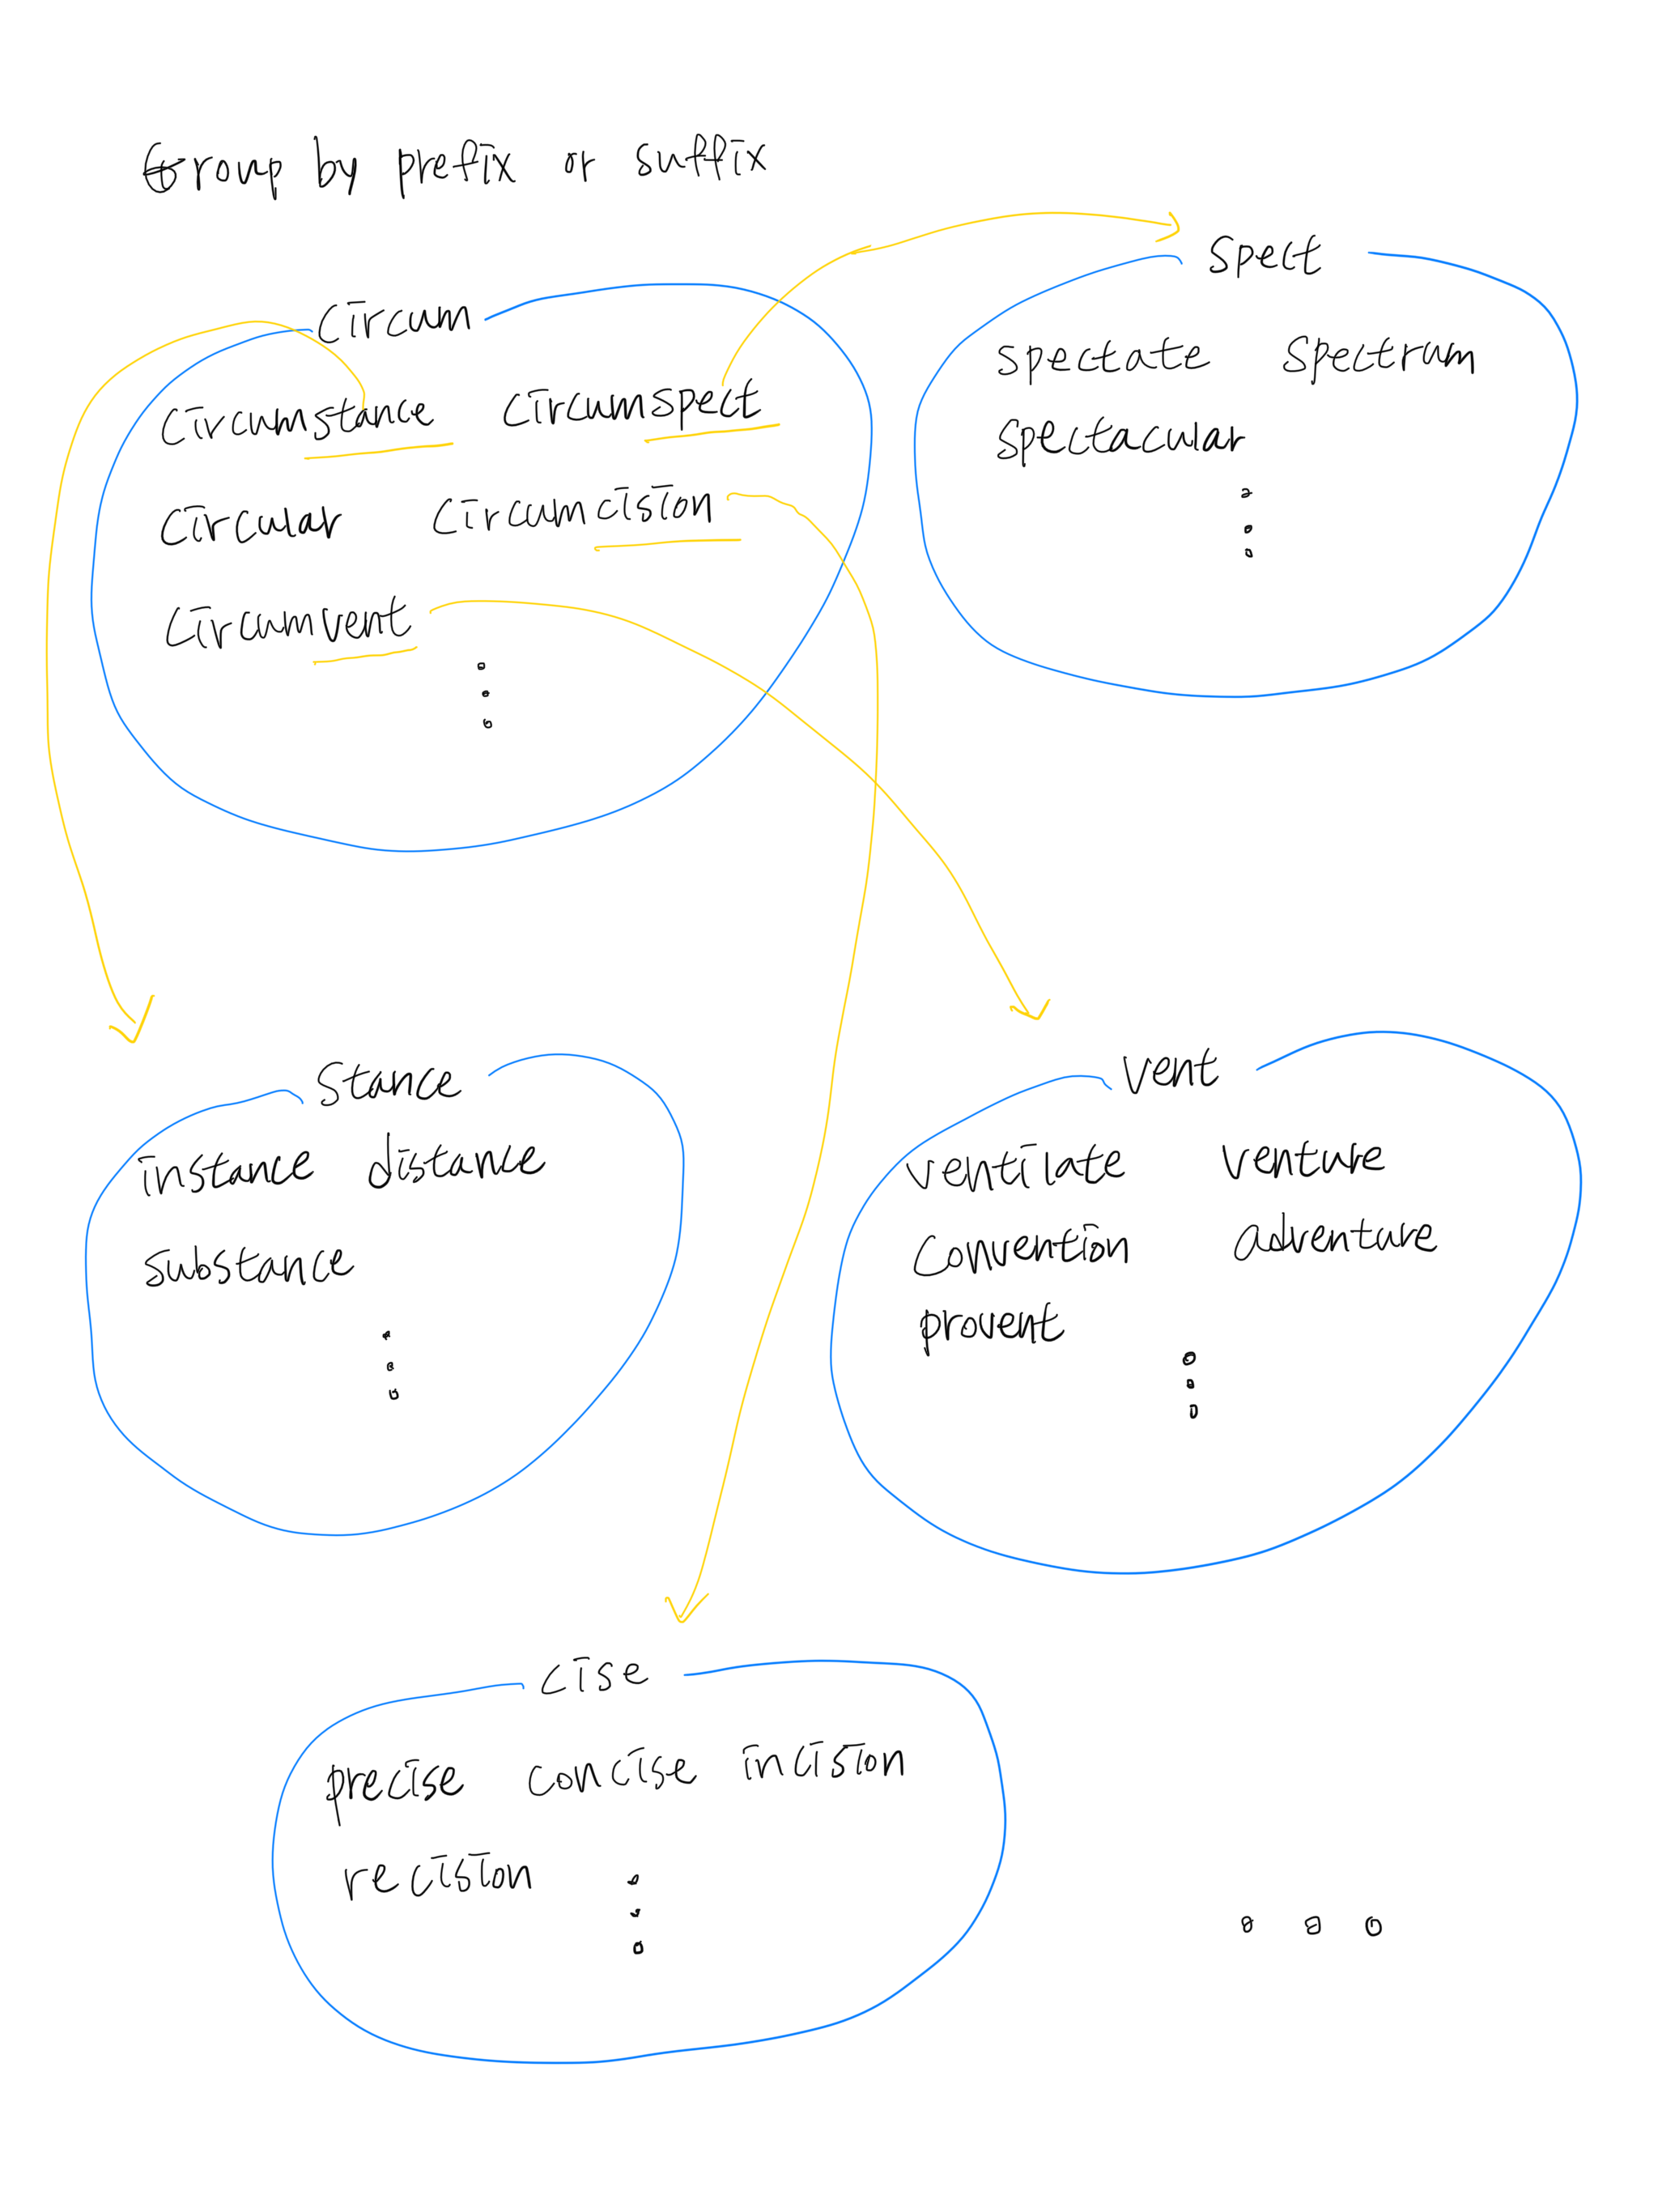 Group by prefix or suffix
Circum
Circumstance Circumspect
Circular Circumcision
Circumvent
Spect
Spectate Spectrum
Spectacular
Stance
instance distance
substance
Vent
ventilate venture
Convention adventure
provent
Cise
precise concise incision
recision